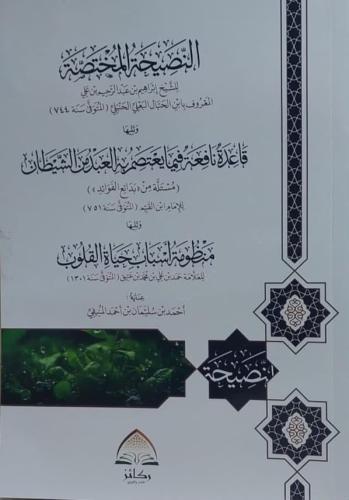 النصيحة المختصة
للشيخ إبراهيم بن عبد الرحيم بن علي
المعروف بابن الحبال البعلي الحنبلي (المتوفى سنة ٧٤٤)
وتليها
قاعدة نافعة فيما يعتصم به العبد من الشيطان
(مستلة من «بدائع الفوائد»)
للإمام ابن القيم (المتوفى سنة ٧٥١)
وتليها
منظومة أسباب حياة القلوب
للعلامة حمد بن علي بن محمد بن عتيق (المتوفى سنة ١٣٠١)
عناية
أحمد بن سليمان بن أحمد المنيفي
النصيحة
ركائز